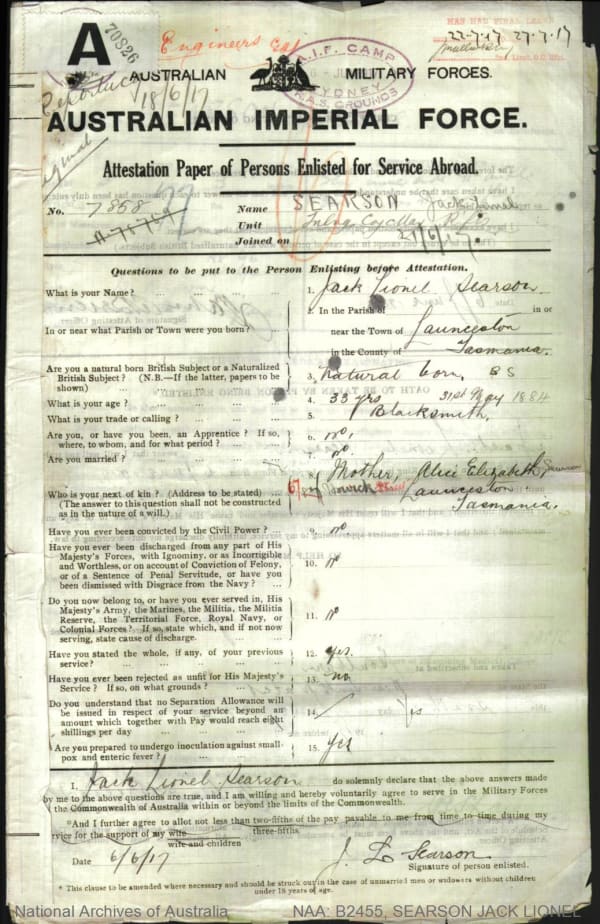 A
70826
Engineers
HAS HAD FINAL LEAVE
27-7-17 27-7-17
A.I.F. CAMP
SYDNEY
R.A.S. GROUNDS
AUSTRALIAN MILITARY FORCES.
18/6/17
AUSTRALIAN IMPERIAL FORCE.
Attestation Paper of Persons Enlisted for Service Abroad.
No. 7858
Name SEARSON Jack Lionel
Unit
Joined on
Questions to be put to the Person Enlisting before Attestation.
What is your Name? 1. Jack Lionel Searson.
In or near what Parish or Town were you born? 2. In the Parish of in or
near the Town of Launceston
in the County of Tasmania.
Are you a natural born British Subject or a Naturalized
British Subject? (N.B.—If the latter, papers to be
shown) 3. Natural born, B S
What is your age? 4. 33 yrs 31st May 1884
What is your trade or calling? 5. Blacksmith.
Are you, or have you been, an Apprentice? If so,
where, to whom, and for what period? 6. no.
Are you married? 7. no.
Who is your next of kin? (Address to be stated) 8. Mother, Alice Elizabeth Searson
(The answer to this question shall not be constructed Launceston
as in the nature of a will.) Tasmania.
Have you ever been convicted by the Civil Power? 9. no
Have you ever been discharged from any part of His
Majesty's Forces, with Ignominy, or as Incorrigible
and Worthless, or on account of Conviction of Felony,
or of a Sentence of Penal Servitude, or have you
been dismissed with Disgrace from the Navy? 10. no
Do you now belong to, or have you ever served in, His
Majesty's Army, the Marines, the Militia, the Militia
Reserve, the Territorial Force, Royal Navy, or
Colonial Forces? If so, state which, and if not now
serving, state cause of discharge. 11. no
Have you stated the whole, if any, of your previous
service? 12. yes.
Have you ever been rejected as unfit for His Majesty's
Service? If so, on what grounds? 13. no
Do you understand that no Separation Allowance will
be issued in respect of your service beyond an
amount which together with Pay would reach eight
shillings per day 14. Yes
Are you prepared to undergo inoculation against small-
pox and enteric fever? 15. Yes
I, Jack Lionel Searson do solemnly declare that the above answers made
by me to the above questions are true, and I am willing and hereby voluntarily agree to serve in the Military Forces
of the Commonwealth of Australia within or beyond the limits of the Commonwealth.
*And I further agree to allot not less than two-fifths of the pay payable to me from time to time during my
service for the support of my wife three-fifths
wife and children
Date 6/6/17 J. L Searson.
Signature of person enlisted.
* This clause to be amended where necessary and should be struck out in the case of unmarried men or widowers without children
under 18 years of age.
National Archives of Australia NAA: B2455, SEARSON JACK LIONEL